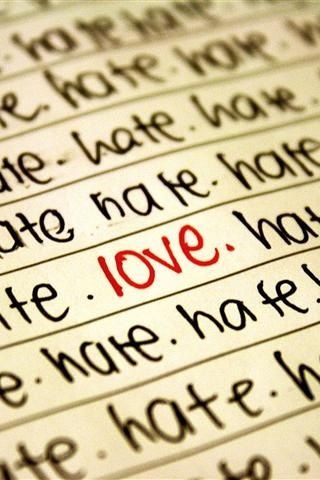 hate. hate
hate. hate. hate
hate. hate. hate
hate. hate. hate
ate. love. hat
te. hate. hate!
e. hate. hate
hate. hate. h